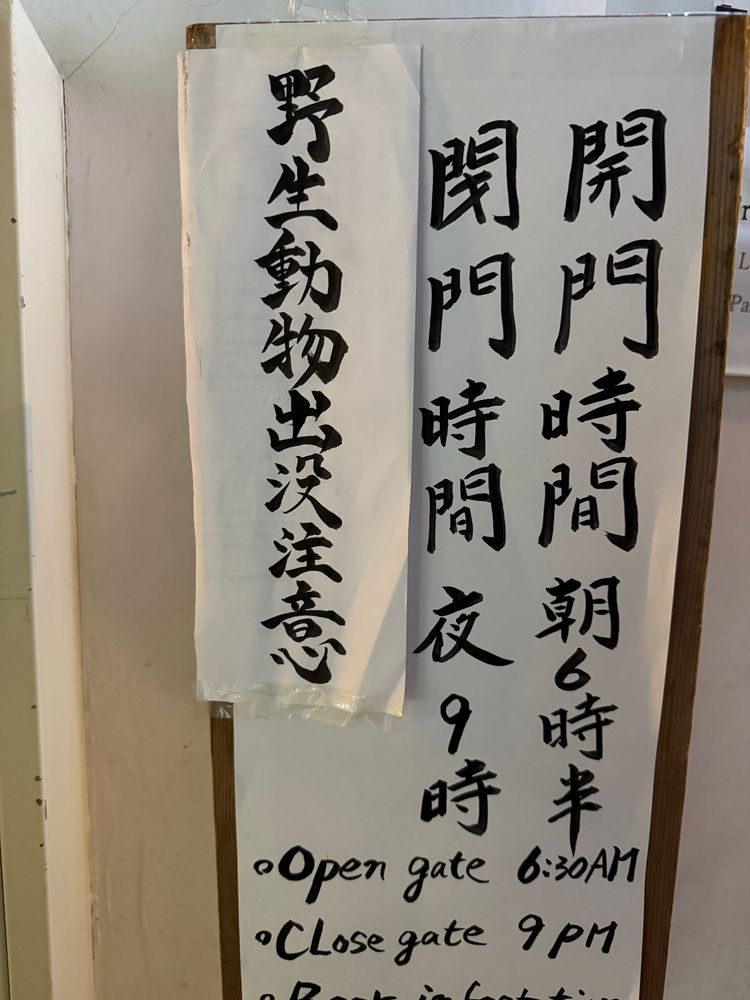 開門時間 朝6時半
閉門時間 夜9時
野生動物出没注意
Open gate 6:30AM
CLose gate 9PM